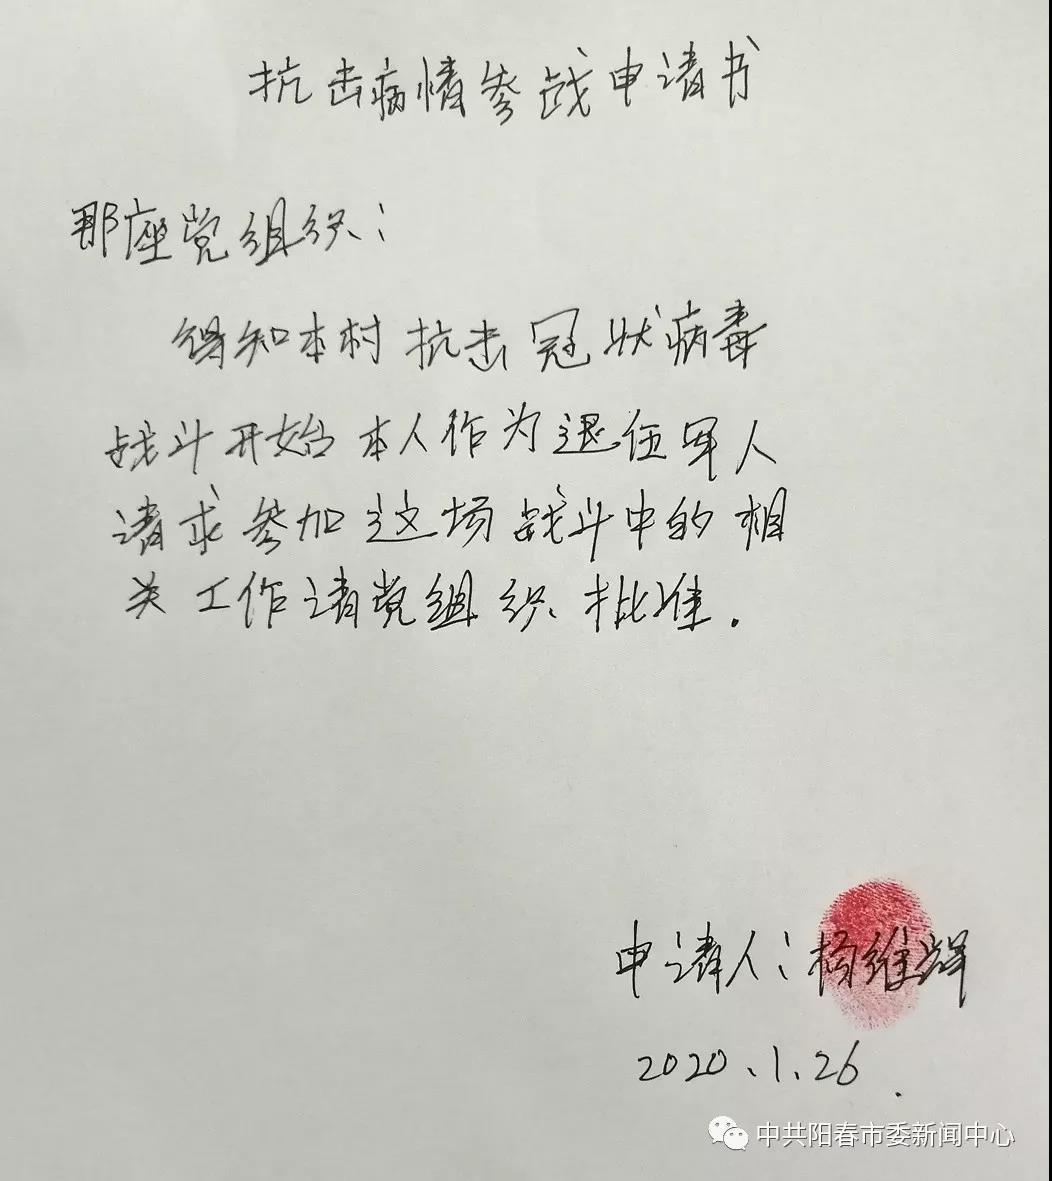 抗击病情参战申请书
那座党组织：
得知本村抗击冠状病毒
战斗开始本人作为退伍军人
请求参加这场战斗中的相
关工作请党组织批准.
申请人：杨维辉
2020.1.26.
中共阳春市委新闻中心